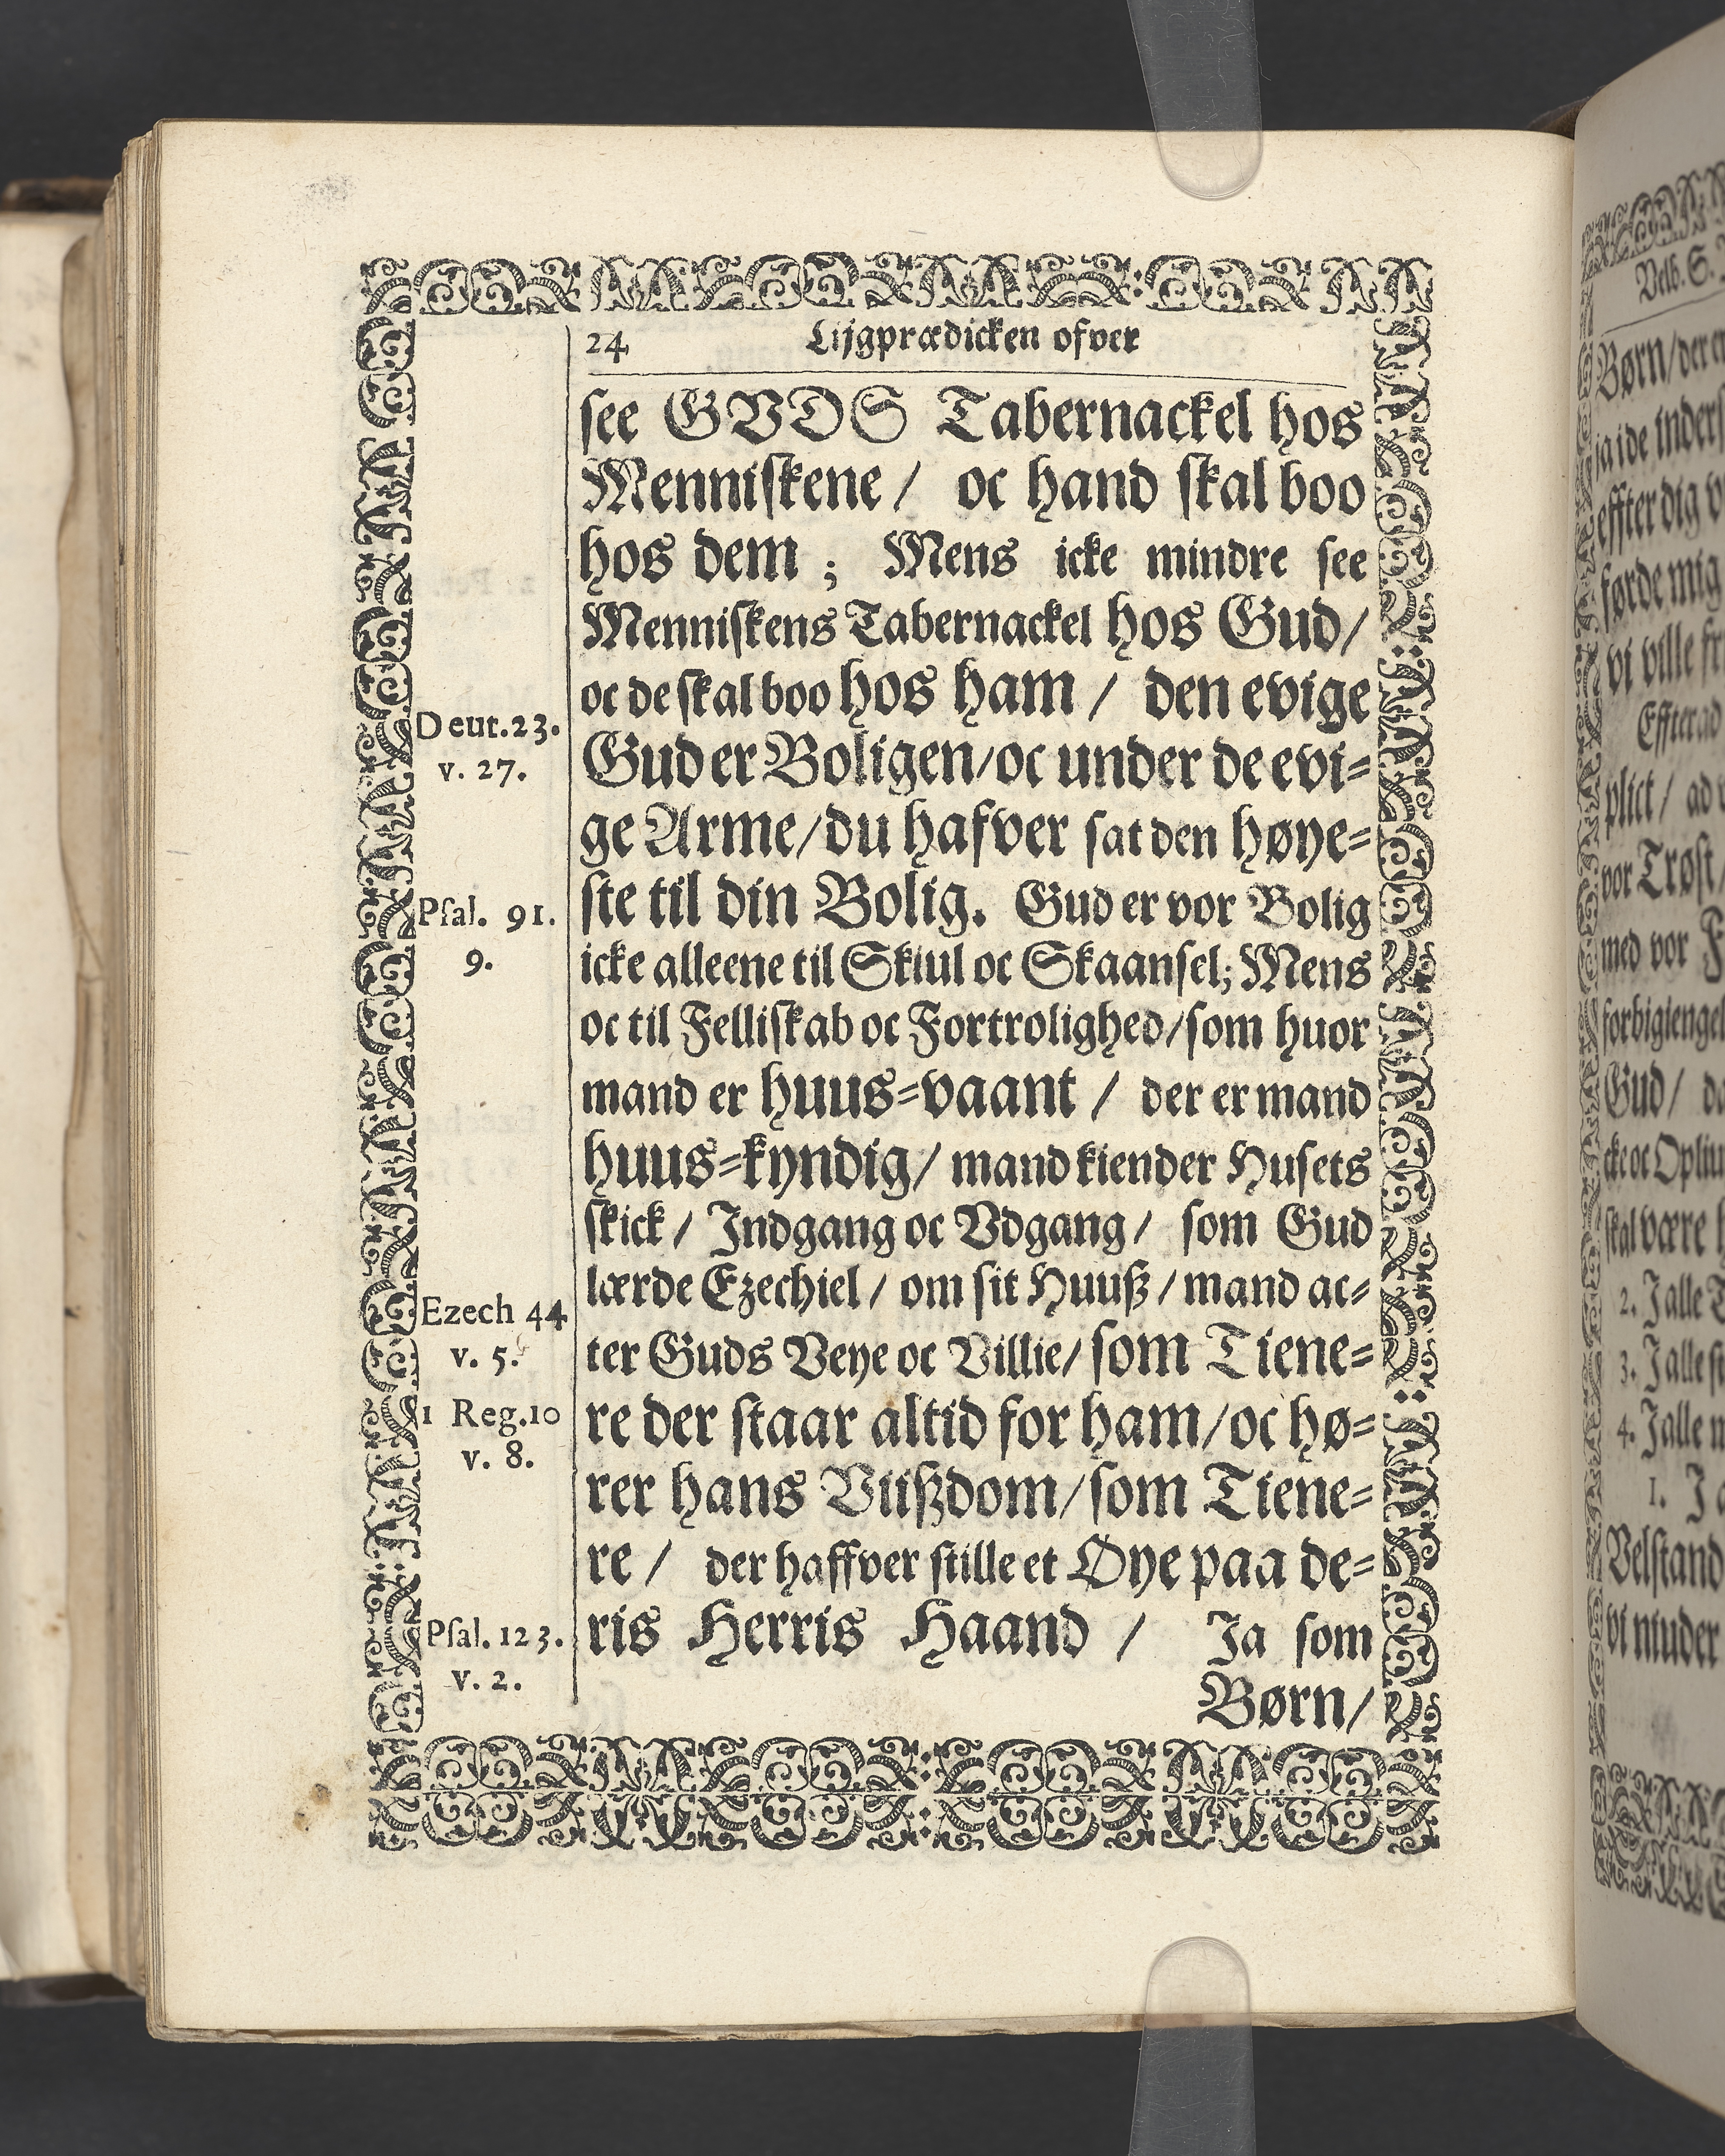 24 Lijgprædicken ofver
see GVDS Tabernackel hos
Menniskene / oc hand skal boo
hos dem ; Mens icke mindre see
Menniskens Tabernackel hos Gud/
oc de skal boo hos ham / den evige
Deut.23.
v. 27.
Gud er Boligen/oc under de evi=
ge Arme/du hafver sat den høye=
ste til din Bolig. Gud er vor Bolig
Psal. 91.
9.
icke alleene til Skiul oc Skaansel; Mens
oc til Felliskab oc Fortrolighed/som huor
mand er huus=vaant / der er mand
huus=kyndig/ mand kiender Husets
skick / Indgang oc Vdgang/ som Gud
lærde Ezechiel / om sit Huuß / mand ac=
Ezech 44
v. 5.
ter Guds Veye oc Villie/ som Tiene=
re der staar altid for ham/oc hø=
1 Reg.10
v. 8.
rer hans Viißdom/som Tiene=
re / der haffver stille et Øye paa de=
ris Herris Haand / Ja som
Psal.123.
v. 2.
Børn/
Velb. S.
Børn/der
ja i de
effter dig
førde mig
vi ville
Effter ad
plict / ad
vor Trøst/
med vor
forbigiengel
Gud /
cke oc
skal være
2. J alle
3. J alle
4. J alle
1. J
Velstand
vi niuder